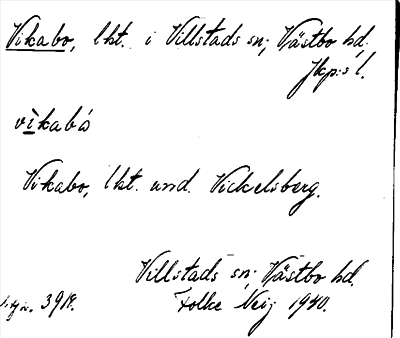 Vikabo, lht. i Villstads sn; Västbo hd,
Jkp:s l.
vìkabó
Vikabo, lht. und. Vickelsberg.
Villstads sn; Västbo hd.
3918. Folke Neij 1940.